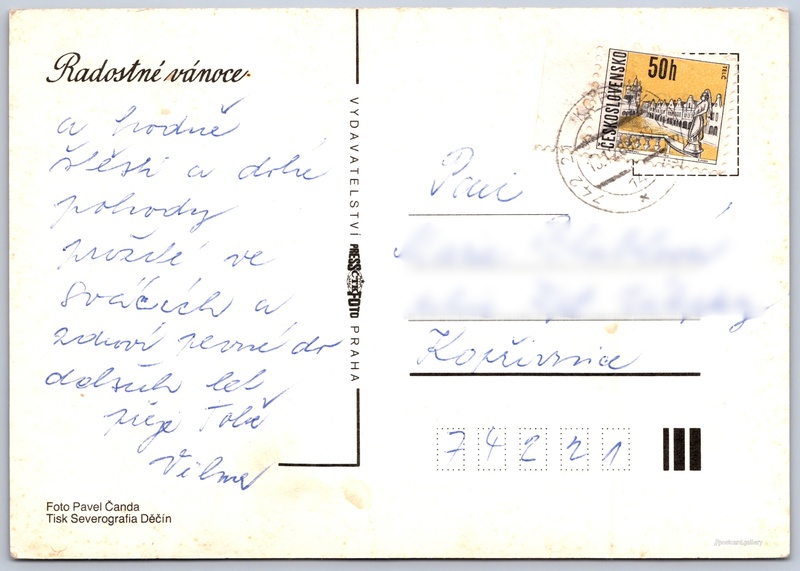 Radostné vánoce
a hodně
štěstí a dobré
pohody
prožité ve
svátcích a
zdraví pevné do
dalších let
přeje Tobě
Vilma
Foto Pavel Čanda
Tisk Severografia Děčín
VYDAVATELSTVÍ PRESSFOTO PRAHA
ČTK
ČESKOSLOVENSKO
50h
TELČ
742 2
Paní
Kopřivnice
74221
@postcard.gallery